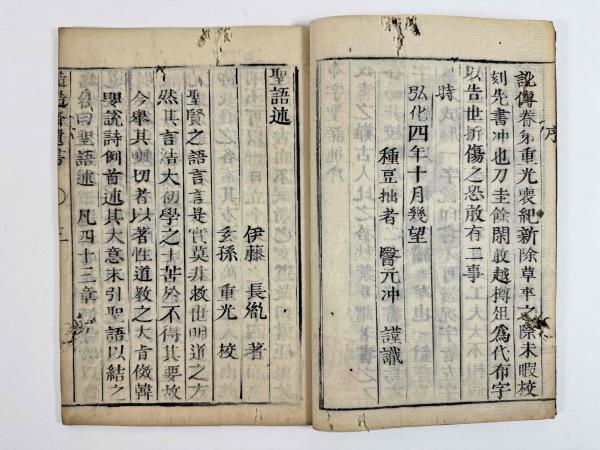 序
訛傳眷弟重光喪紀新除草卒之際未暇校
刻先書冲也刀圭餘閑敢越樽俎爲代布字
以告世折傷之恐敢有二事
時
弘化四年十月幾望
種豆拙者 醫元冲 謹識
聖語述
伊藤 長胤 著
玄孫 重光 校
聖賢之語言言是實莫非救世明道之方
然其言浩大初學之士苦於不得其要故
今擧其切者以著性道教之大旨倣韓
嬰說詩例首述其大意末引聖語以結之
曰聖語述凡四十三章